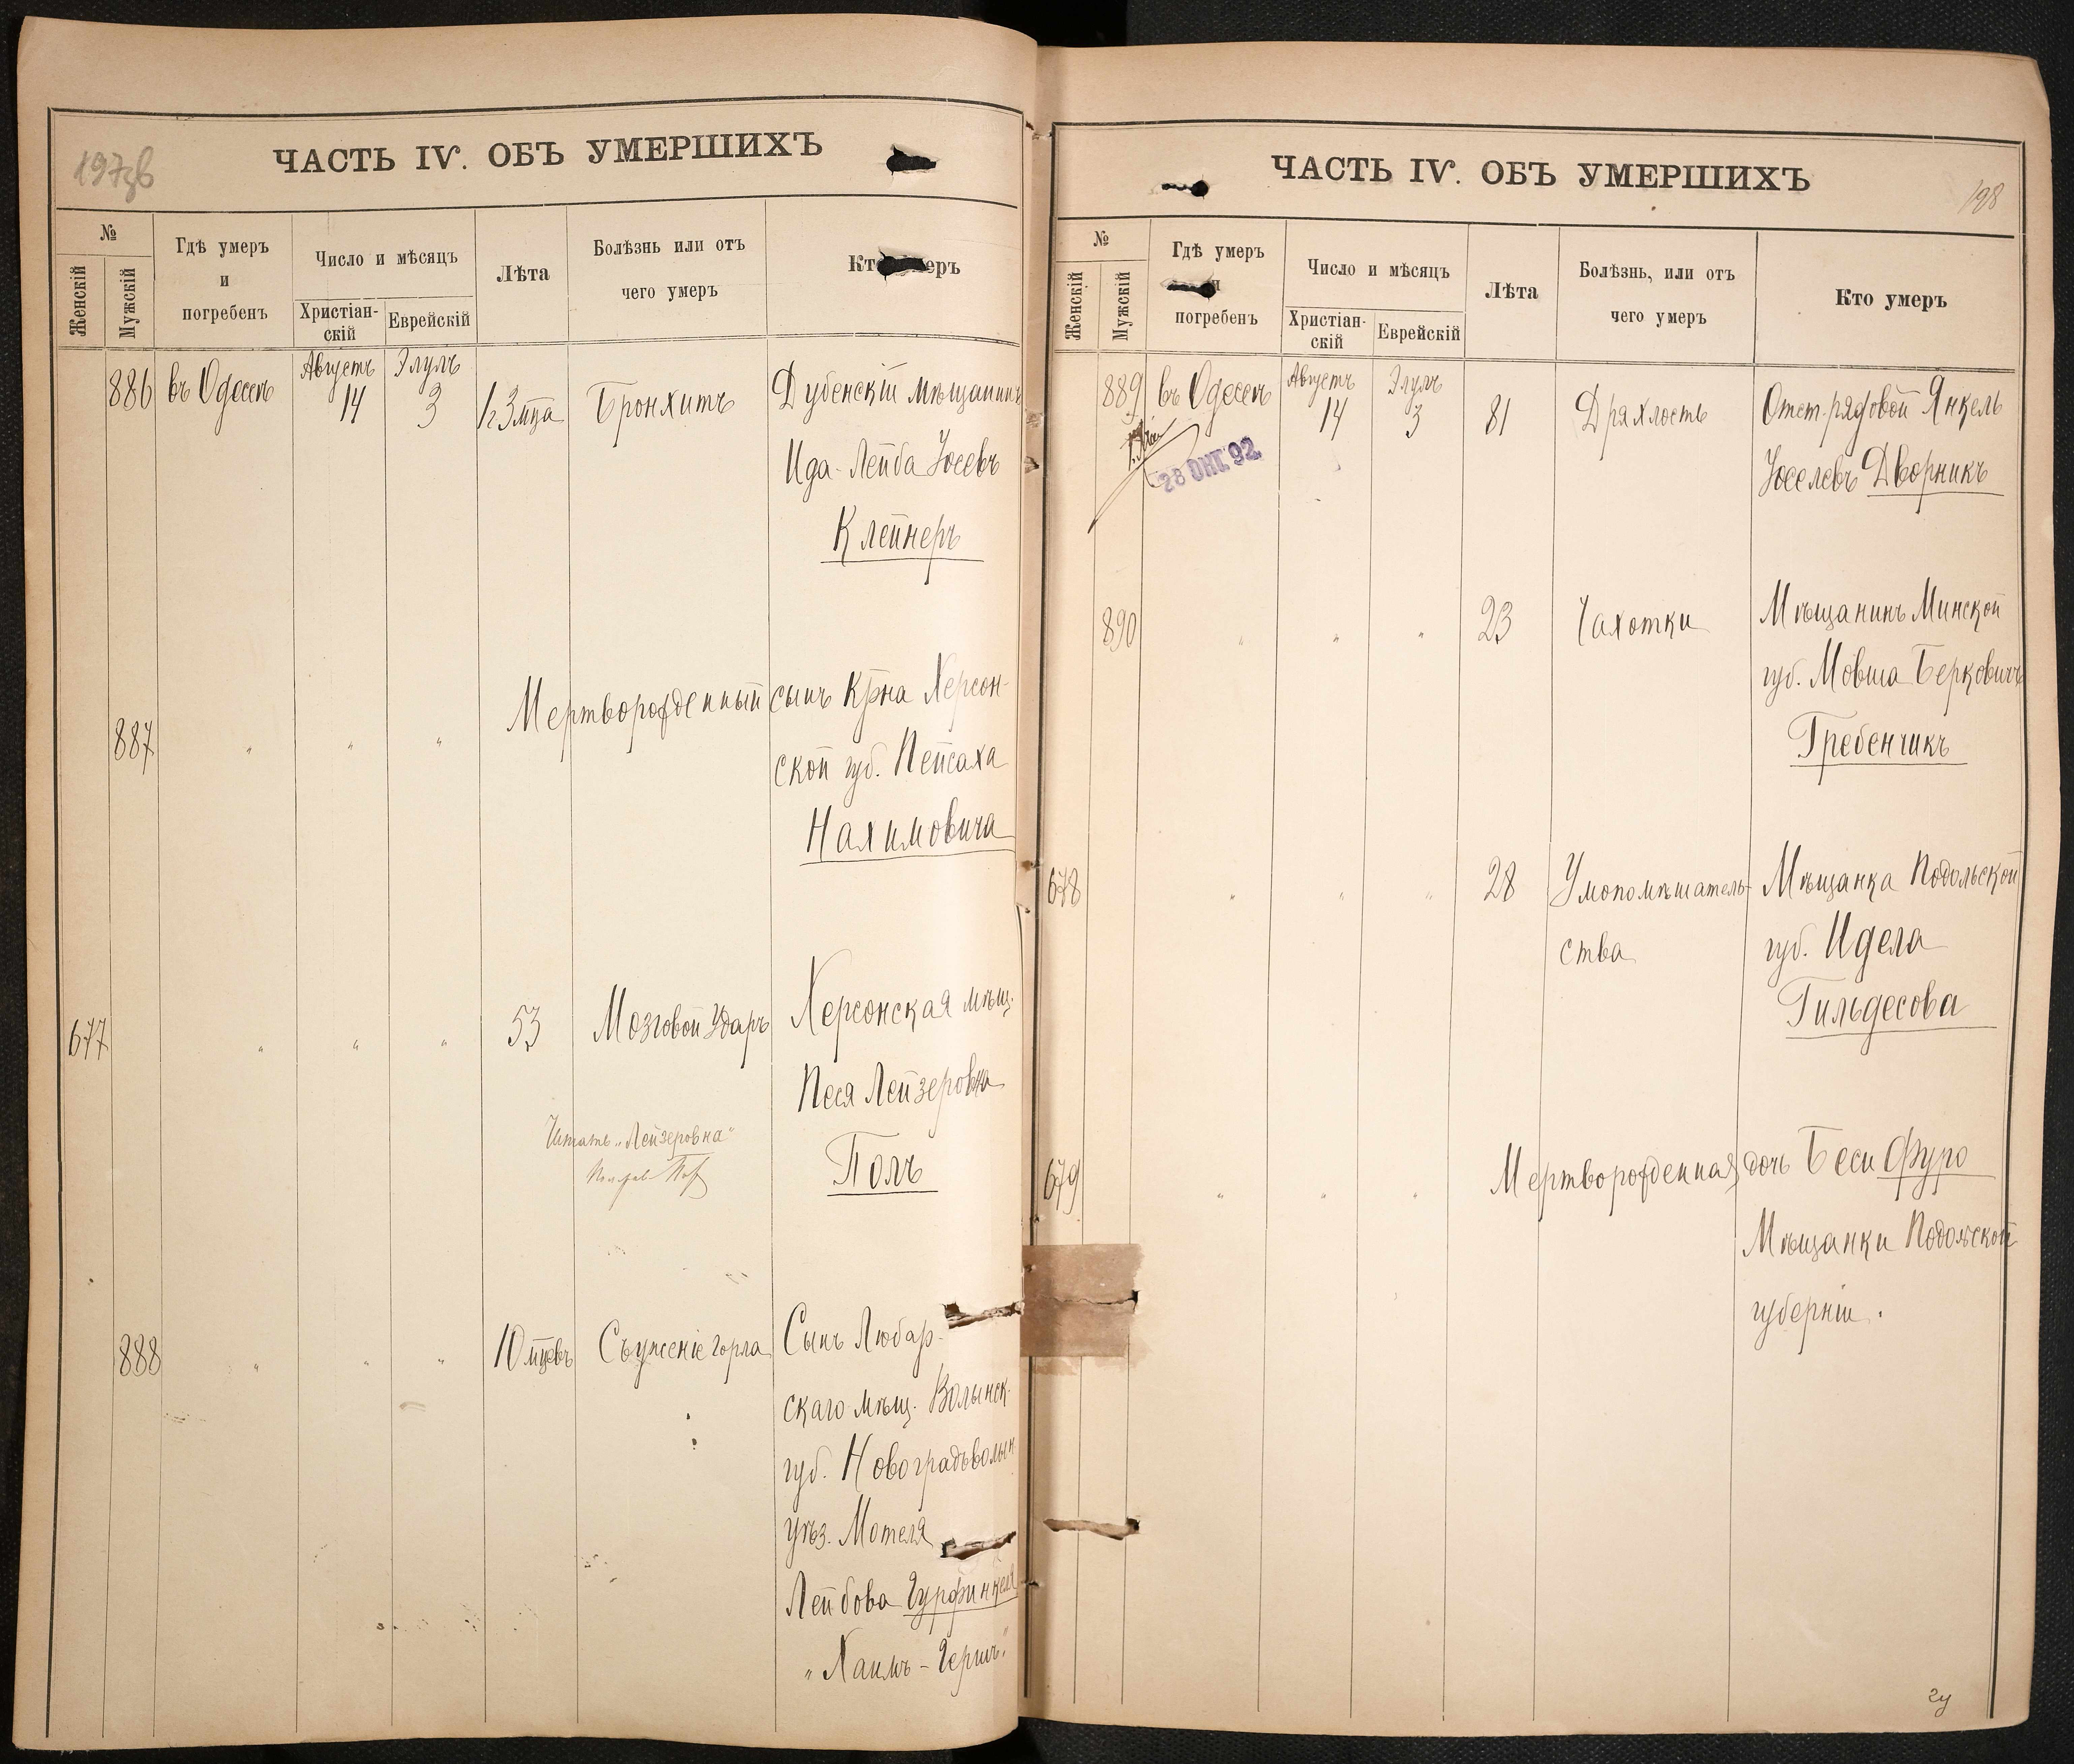 197зв
ЧАСТЬ IV. ОБЪ УМЕРШИХЪ
№
Женскій
Мужскій
Гдѣ умеръ
и
погребенъ
Число и мѣсяцъ
Христіан-
скій
Еврейскій
Лѣта
Болѣзнь или отъ
чего умеръ
Кто
еръ
886 въ Одессѣ Августъ 14 Элулъ 3 1 г. 3 мца Бронхитъ Дубенскій мѣщанинъ
Ида-Лейба Іосевъ
Клейнеръ
887 " " " Мертворожденный сынъ Кр-на Херсон-
ской губ. Пейсаха
Нахимовича
677 " " " 53 Мозговой Ударъ Херсонская мѣщ.
Песя Лейзеровна
Полъ
Читать „Лейзеровна"
888 " " " 10 мцевъ Съуженіе горла Сынъ Любар-
скаго мѣщ. Волынск.
губ. Новоградъволын
уѣз. Мотеля
Лейбова Гурфинкеля
„Хаимъ-Герш".
ЧАСТЬ IV. ОБЪ УМЕРШИХЪ
198
№
Женскій
Мужскій
Гдѣ умеръ
и
погребенъ
Число и мѣсяцъ
Христіан-
скій
Еврейскій
Лѣта
Болѣзнь, или отъ
чего умеръ
Кто умеръ
889 въ Одессѣ Августъ 14 Элулъ 3 81 Дряхлость Отст. рядовой Янкель
Іоселевъ Дворникъ
28 ОКТ. 92
890 " " " 23 Чахотки Мѣщанинъ Минской
губ. Мовша Берковичъ
Гребенчикъ
678 " " " 28 Умопомѣшатель- Мѣщанка Подольской
ства губ. Идела
Гильдесова
679 " " " Мертворожденная дочь Беси Фуро
Мѣщанки Подольской
губерніи.